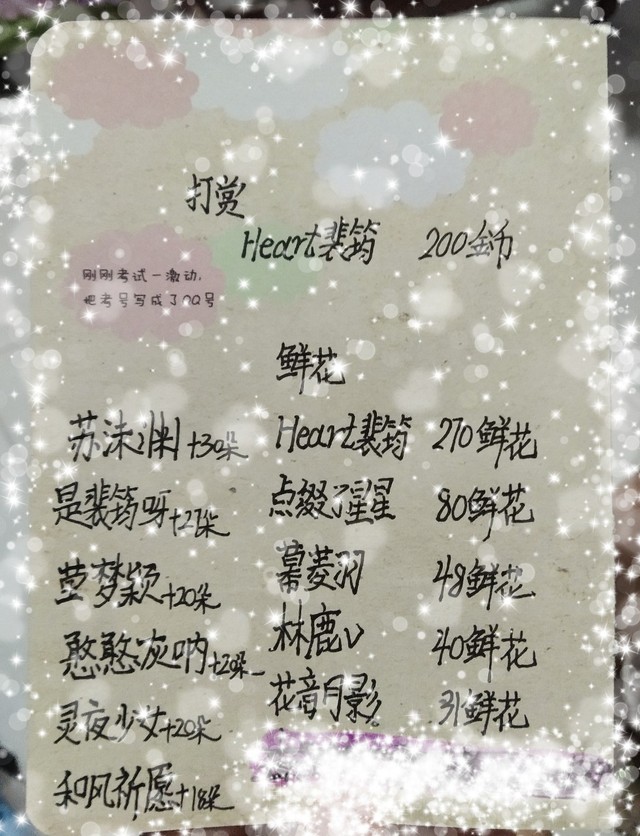 打赏
Heart裴筠 200金币
刚刚考试一激动,
把考号写成了QQ号
鲜花
苏沫渊+30朵 Heart裴筠 270鲜花
是裴筠呀+27朵 点缀了星星 80鲜花
萱梦颖+20朵 幕菱羽 48鲜花
憨憨灰呐+20朵 林鹿v 40鲜花
灵夜少女+20朵 花音月影 31鲜花
和风祈愿+18朵